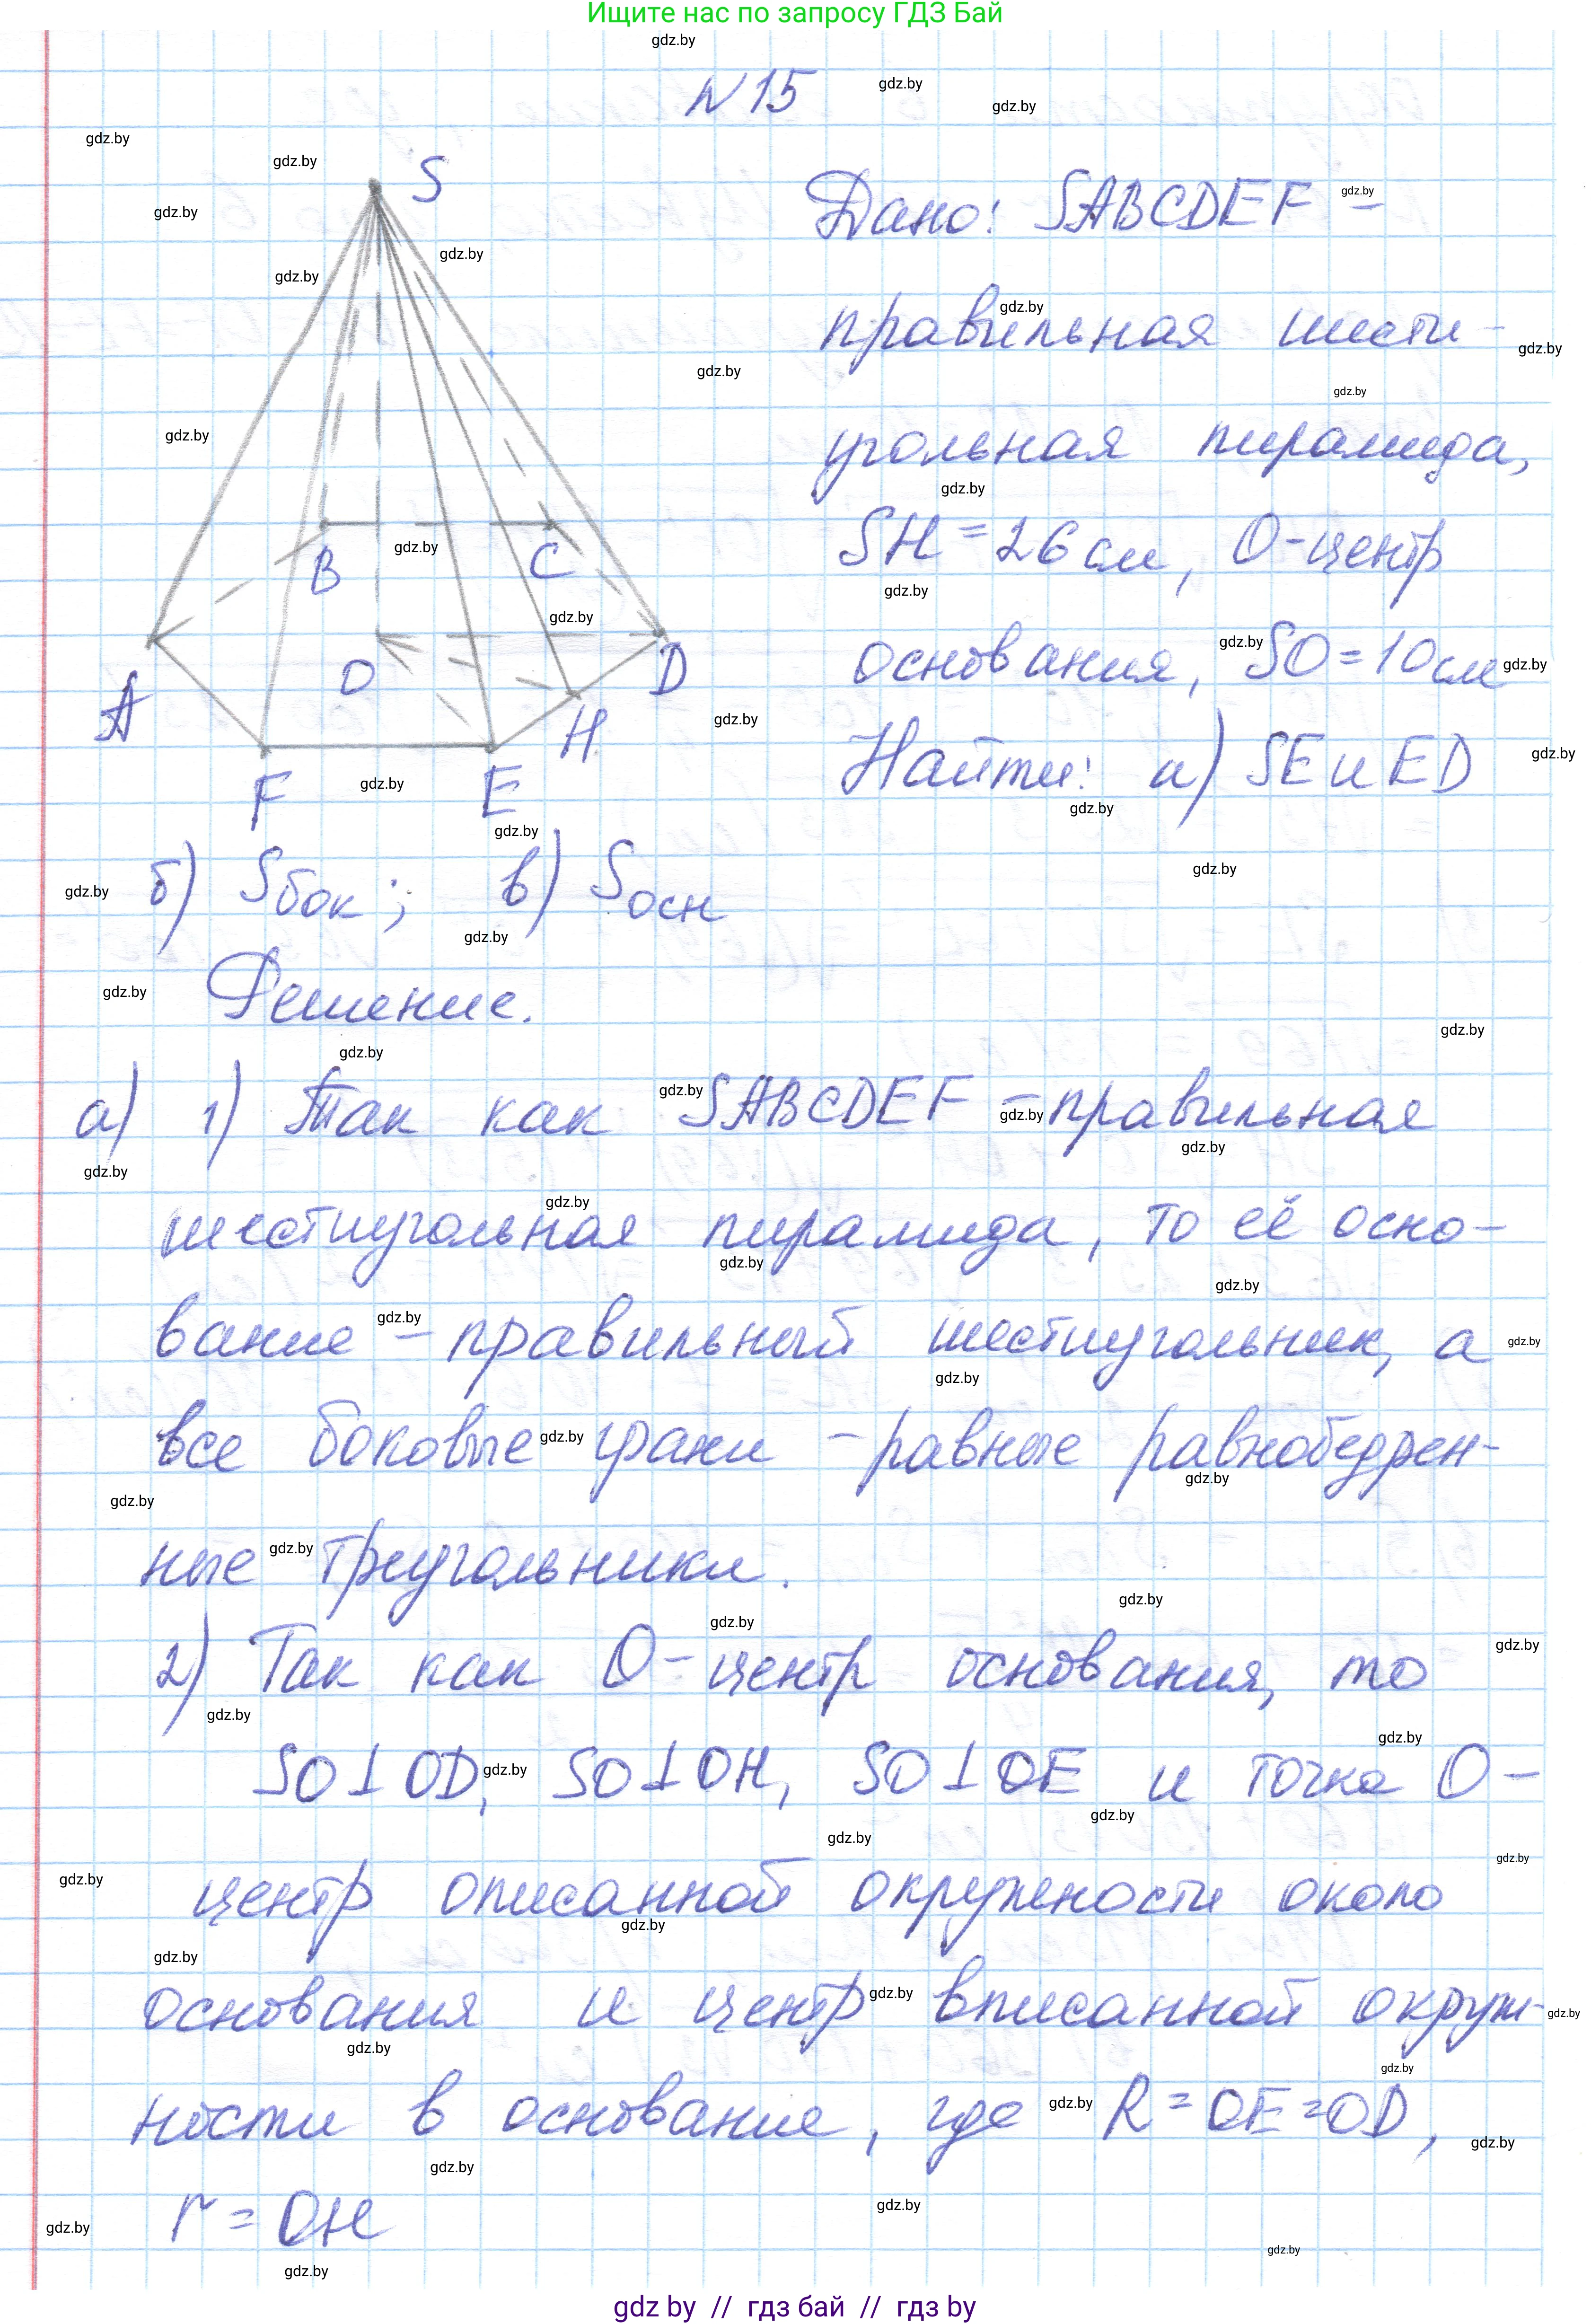 Ищите нас по запросу ГДЗ Бай
N 15
S
Дано: SABCDEF –
правильная шести-
угольная пирамида,
SH = 26 см, O-центр
B C
основания, SO = 10 см
O D
A
H
Найти: а) SE и ED
F E
б) Sбок; в) Sосн
Решение.
а) 1) Так как SABCDEF – правильная
шестиугольная пирамида, то её осно-
вание – правильный шестиугольник, а
все боковые грани – равные равнобедрен-
ные треугольники.
2) Так как O-центр основания, то
SO⊥OD, SO⊥OH, SO⊥OE и точка O-
центр описанной окружности около
основания и центр вписанной окруж-
ности в основание, где R = OE = OD,
r = OH
gdz by // гдз бай // гдз by